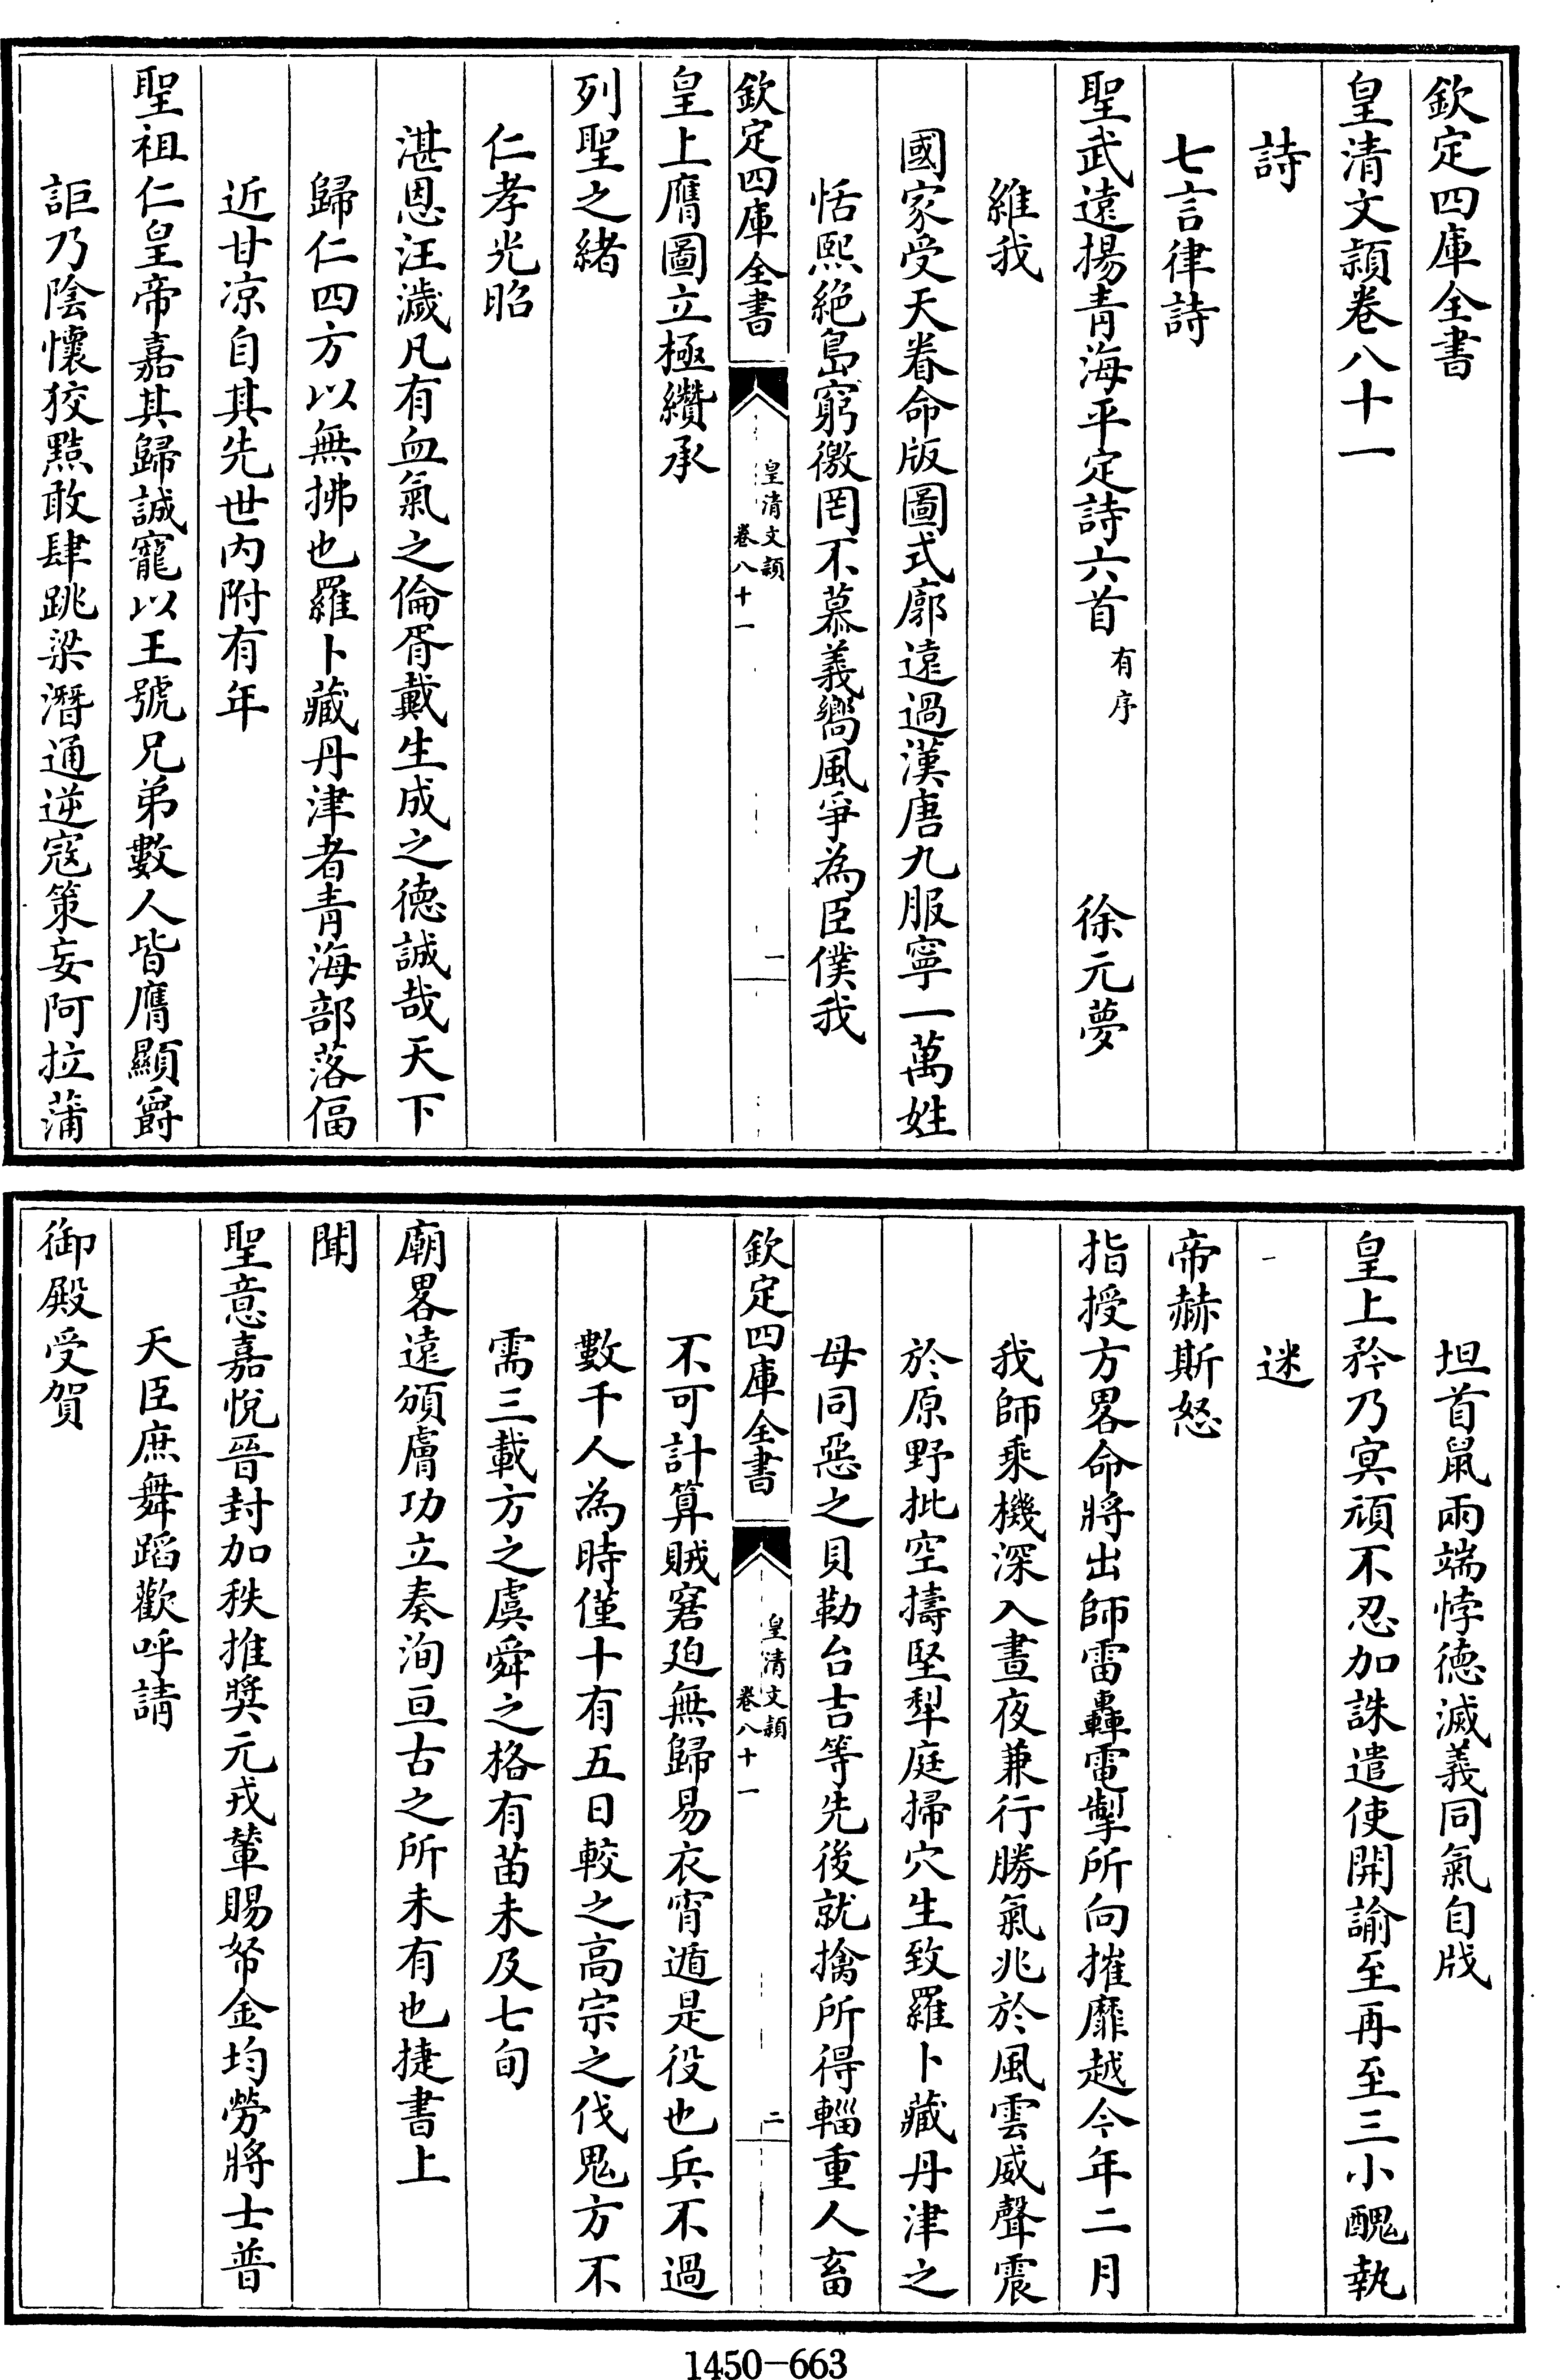 欽定四庫全書
皇清文穎卷八十一
詩
七言律詩
聖武遠揚青海平定詩六首有序 徐元夢
維我
國家受天眷命版圖式廓遠過漢唐九服寧一萬姓
恬熙絶島窮徼罔不慕義嚮風爭為臣僕我
欽定四庫全書 皇清文穎 卷八十一 一
皇上膺圖立極纘承
列聖之緒
仁孝光昭
湛恩汪濊凡有血氣之倫胥戴生成之德誠哉天下
歸仁四方以無拂也羅卜藏丹津者青海部落偪
近甘凉自其先世内附有年
聖祖仁皇帝嘉其歸誠寵以王號兄弟數人皆膺顯爵
詎乃陰懷狡黠敢肆跳梁潛通逆寇策妄阿拉蒲
坦首鼠兩端悖德滅義同氣自戕
皇上矜乃冥頑不忍加誅遣使開諭至再至三小醜執
迷
帝赫斯怒
指授方畧命將出師雷轟電掣所向摧靡越今年二月
我師乘機深入晝夜兼行勝氣兆於風雲威聲震
於原野批空擣堅犁庭掃穴生致羅卜藏丹津之
母同惡之貝勒台吉等先後就擒所得輜重人畜
欽定四庫全書 皇清文穎 卷八十一 二
不可計算賊窘廹無歸易衣宵遁是役也兵不過
數千人為時僅十有五日較之高宗之伐鬼方不
需三載方之虞舜之格有苗未及七旬
廟畧遠頒膚功立奏洵亘古之所未有也捷書上
聞
聖意嘉悅晉封加秩推奬元戎輦賜帑金均勞將士普
天臣庶舞蹈歡呼請
御殿受賀
1450-663